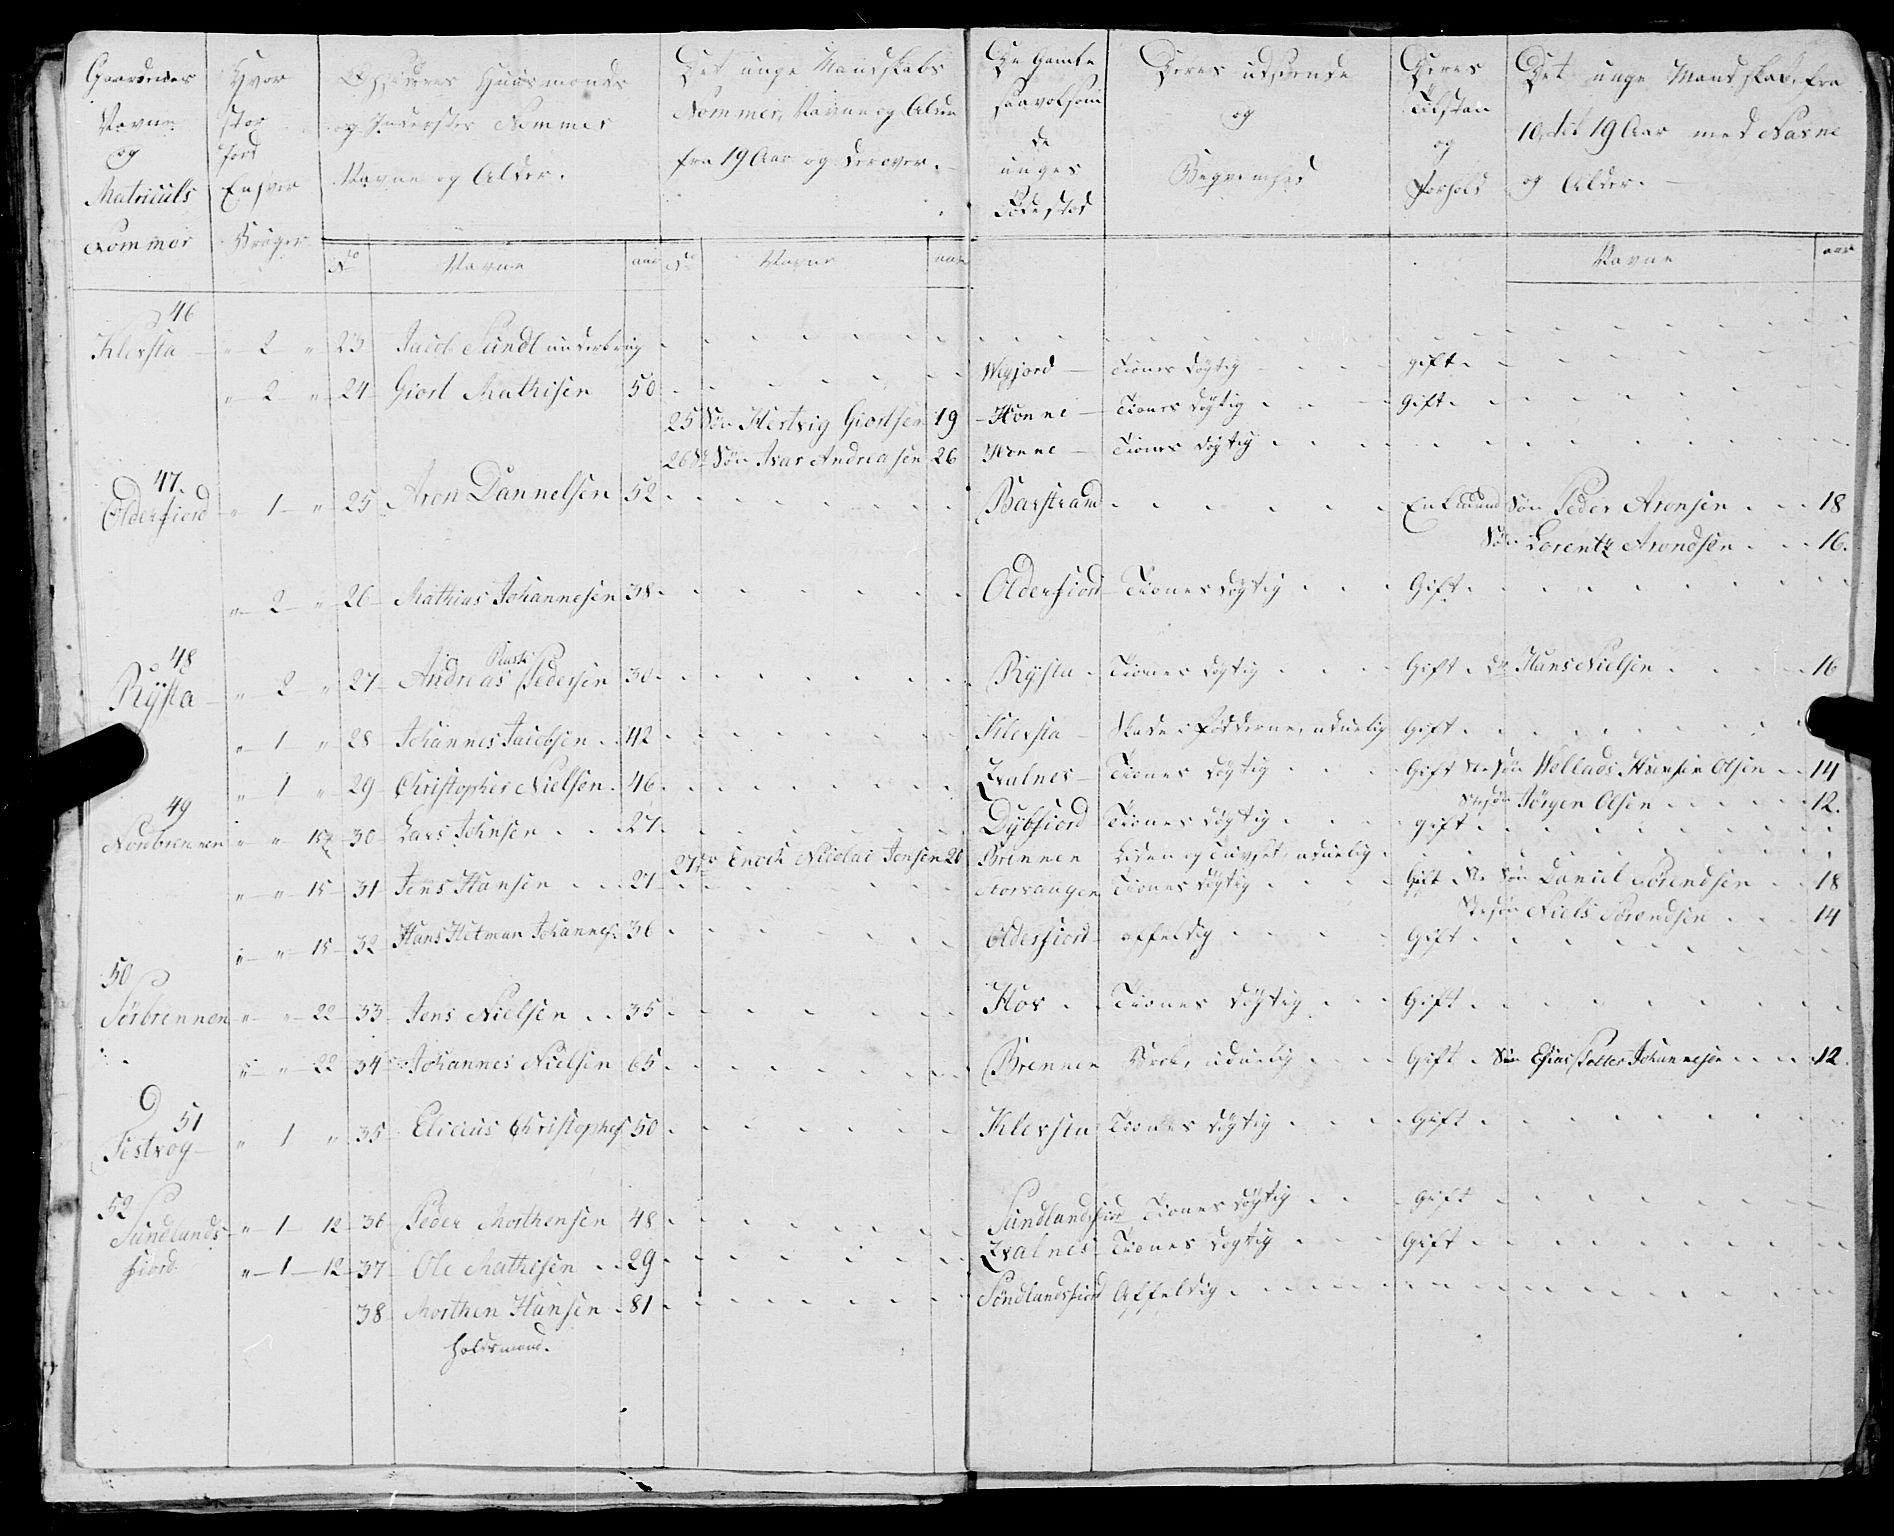 Gaardenes Navne og Matriculs Nommer | Hvor stor Jord Enhver Bruger | Opsidderes Huusmænds og Inderstes Nommer Navne og Alder. | Det unge Mandskabs Nommer, Navne og Alder fra 19 Aar og derover. | De Gamle saavelsom de unges Fødested | Deres udseende og Beqvemhed | Deres Tilstand og Forhold | Det unge Mandskab fra 10 til 19 Aar med Navne og Alder.
No | Navne | aar | No | Navne | aar | Navne | aar
46
Klevsta " 2 " 23 Jacob Lund underbrug
" 2 " 24 Giort Mathisen 50 Wigfiord Tienes dygtig gift
25 Søn Hertvig Giortsen 19 Honne Tienes dygtig Gift
26 St Søn Ivar Andreasen 26 Honne Tienes dygtig
47.
Olderfiord " 1 " 25 Aron Dannelsen 52 Barstrand Enkemand Søn Peder Aronsen 18
Søn Lorentz Arondsen 16.
" 2 " 26 Mathias Johannesen 38 Olderfiord Tienes dygtig Gift
48
Rysta " 2 " 27 Andreas Pedersen 30 Rysta Tienes dygtig Gift Hans Nielsen 16
" 1 " 28 Johannes Jacobsen 42 Klevsta Skade i Fødderne, uduelig Gift
" 1 " 29 Christopher Nielsen 46 Qvalnes Tienes dygtig Gift Ste Søn Wellads Olsen 14
Stesøn Jørgen Olsen 12.
49
Nordbrennen " " 15 30 Lars Johnsen 27 Dybfiord Tienes dygtig gift
27 Enoch Nicolai Jensen 20 Brennen Liden og uduelig
" " 15 31 Jens Hansen 27 Tienes dygtig Gift Ste Søn Daniel Sørendsen 18
Stesøn Niels Sørendsen 14
" " 15 32 Hans Hitman Johannes 36 Olderfiord affeldig Gift
50
Sørbrennen " " 22 33 Jens Nielsen 35 Hov Tienes dygtig Gift
" " 22 34 Johannes Nielsen 65 Brennen Brok, uduelig Gift Søn Esias Petter Johannesen 12.
51
Festvog " 1 " 35 Eliaus Christophes 50 Klevsta Tienes dygtig Gift
52
Sundlandsfiord " 1 12 36 Peder Morthensen 48 Sundlandsfiord Tienes dygtig Gift
" 1 12 37 Ole Mathisen 29 Qvalnes Tienes dygtig Gift
38 Morthen Hansen 81 Søndlandsfiord Affeldig
Holdsmand.